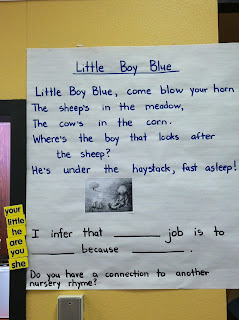 Little Boy Blue
Little Boy Blue, come blow your horn
The sheep's in the meadow,
The cow's in the corn.
Where's the boy that looks after
the sheep?
He's under the haystack, fast asleep!
I infer that ______ job is to
______ because ______.
Do you have a connection to another
nursery rhyme?
your
little
he
are
you
she